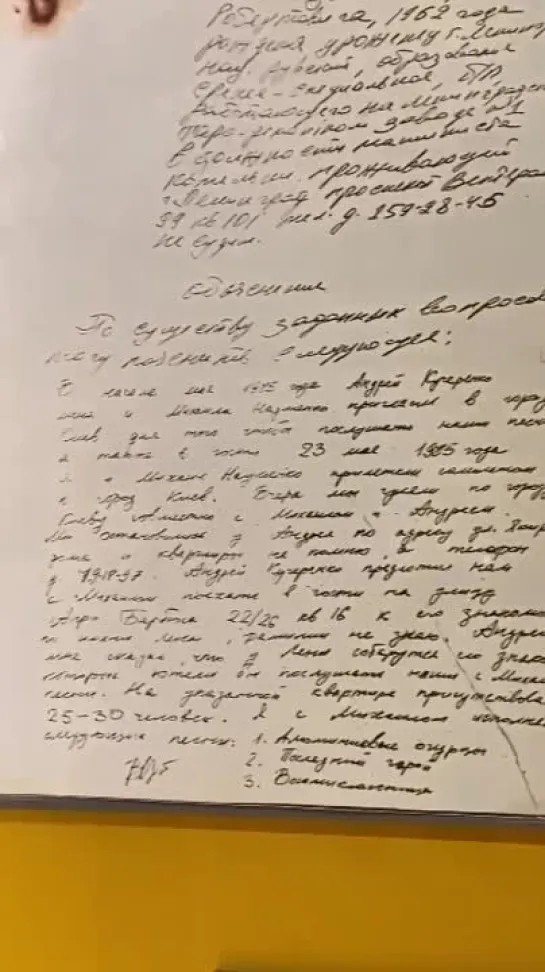 Робертовича, 1962 года
рождения урожему г. Ленингр
нац. русский, образование
средне-специальное, б/п
работающего на Ленинградском
заводе №1
в должности машиниста
котельни, проживающий
г. Ленинград проспект Ветеран
99 кв 101 тел. д. 257-28-45
не судим.
Объяснение
По существу заданных вопросов
могу пояснить следующее:
В начале мая 1985 года Андрей Куренко
меня и Михаила Науменко пригласил в город
Киев для того чтобы послушать наши песни
а также в гости 23 мая 1985 года
я и Михаил Науменко прилетели самолетом
в город Киев. Вчера мы гуляли по городу
Киеву вместе с Михаилом и Андреем.
Мы остановились у Андрея по адресу ул.
дома и квартиры не помню, а телефон
Андрей Куренко предложил нам
с Михаилом поехать в гости на улицу
22/26 кв 16 к его знакомо
по имени Лена, фамилии не знаю. Андрей
мне сказал, что у Лены соберутся его знако
которые хотели бы послушать наши с Миха
песни. На указанной квартире присутствова
25-30 человек. Я с Михаилом исполнял
следующие песни: 1. Алюминиевые огурцы
2. Последний герой
3. Восьмиклассница